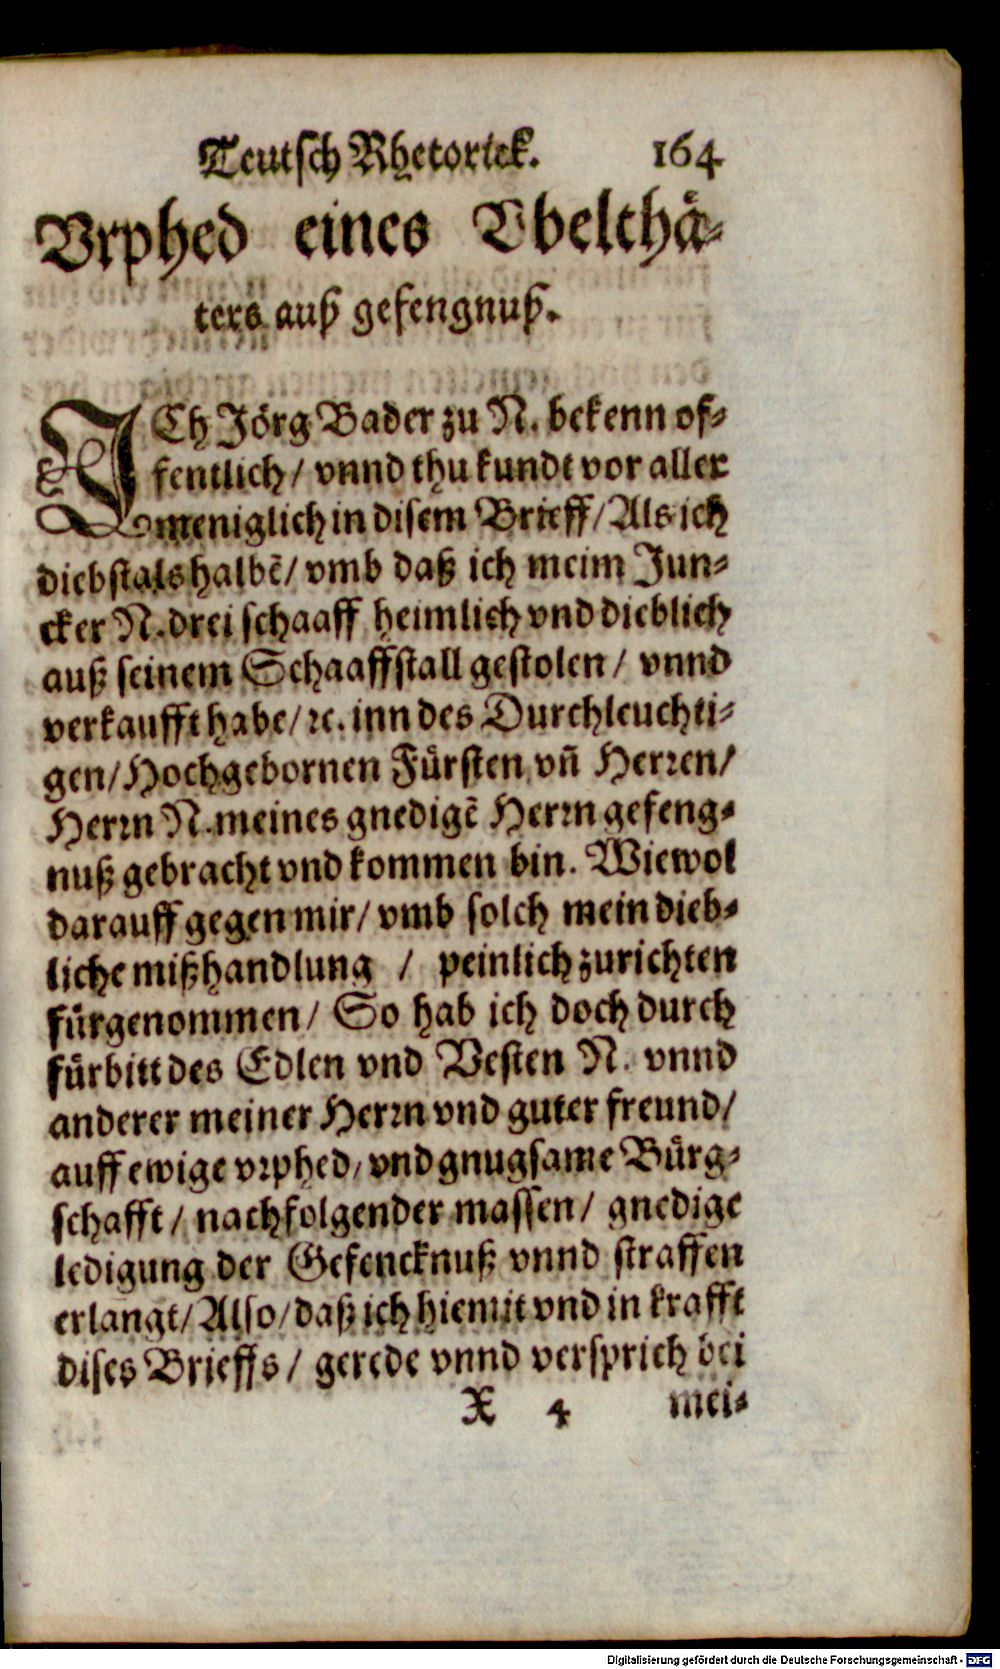 Teutsch Rhetorick. 164
Vrphed eines Vbelthå-
ters auß gefengnuß.
ICh Jörg Bader zu N. bekenn of-
fentlich / vnnd thu kundt vor aller
meniglich in disem Brieff / Als ich
diebstals halbẽ / vmb daß ich meim Jun-
cker N. drei schaaff heimlich vnd dieblich
auß seinem Schaaffstall gestolen / vnnd
verkaufft habe / ꝛc. inn des Durchleuchti-
gen / Hochgebornen Fürsten vñ Herꝛen /
Herꝛn N. meines gnedigẽ Herꝛn gefeng-
nuß gebracht vnd kommen bin. Wiewol
darauff gegen mir / vmb solch mein dieb-
liche mißhandlung / peinlich zurichten
fürgenommen / So hab ich doch durch
fürbitt des Edlen vnd Vesten N. vnnd
anderer meiner Herꝛn vnd guter freund /
auff ewige vꝛphed / vnd gnugsame Bürg-
schafft / nachfolgender massen / gnedige
ledigung der Gefencknuß vnnd straffen
erlangt / Also / daß ich hiemit vnd in krafft
dises Brieffs / gerede vnnd versprich bei
X 4 mei-
Digitalisierung gefördert durch die Deutsche Forschungsgemeinschaft - DFG